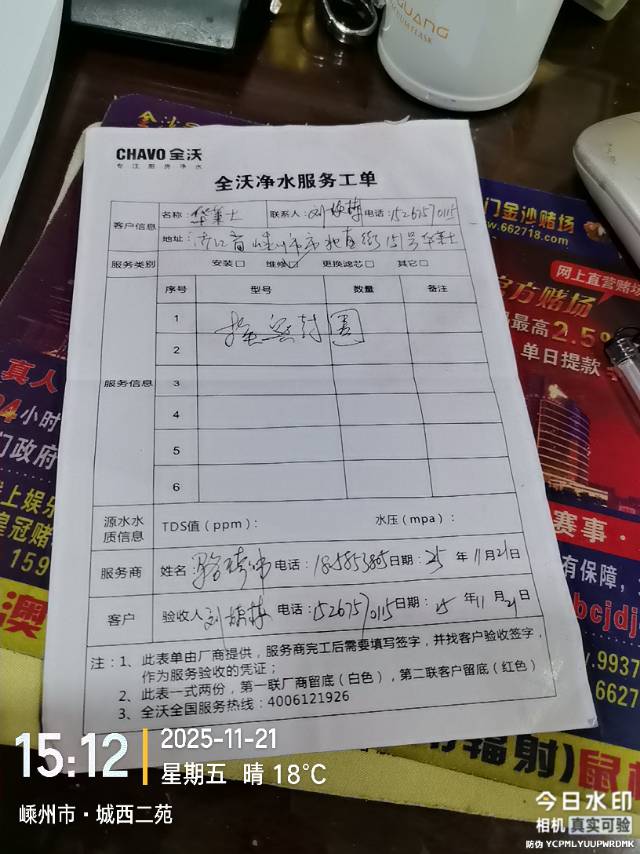 GUANG
CHAVO 全沃
专注厨房净水
全沃净水服务工单
客户信息
名称：华莱士 联系人： 电话：15267570115
地址：浙江省嵊州市市北直街151号华莱士
服务类别 安装□ 维修☑ 更换滤芯□ 其它□
服务信息
序号 型号 数量 备注
1
换密封圈
2
3
4
5
6
源水水质信息 TDS值（ppm）： 水压（mpa）：
服务商 姓名： 电话： 日期：25 年 11月21日
客户 验收人 电话：15267570115 日期：25 年 11月21日
注：1、此表单由厂商提供，服务商完工后需要填写签字，并找客户验收签字，
作为服务验收的凭证；
2、此表一式两份，第一联厂商留底（白色），第二联客户留底（红色）
3、全沃全国服务热线：4006121926
门金沙赌场
www.662718.com
网上直营赌场
官方赌场
最高2.5%
单日提款
真人
24小时
门政府
上娱乐
皇冠赌
159
澳
赛事·
有保障，
bcjdj
.9937
6627
辐射)
15:12
2025-11-21
星期五 晴 18°C
嵊州市·城西二苑
今日水印
相机 真实可验
防伪 YCPMLYUUPWRDMK